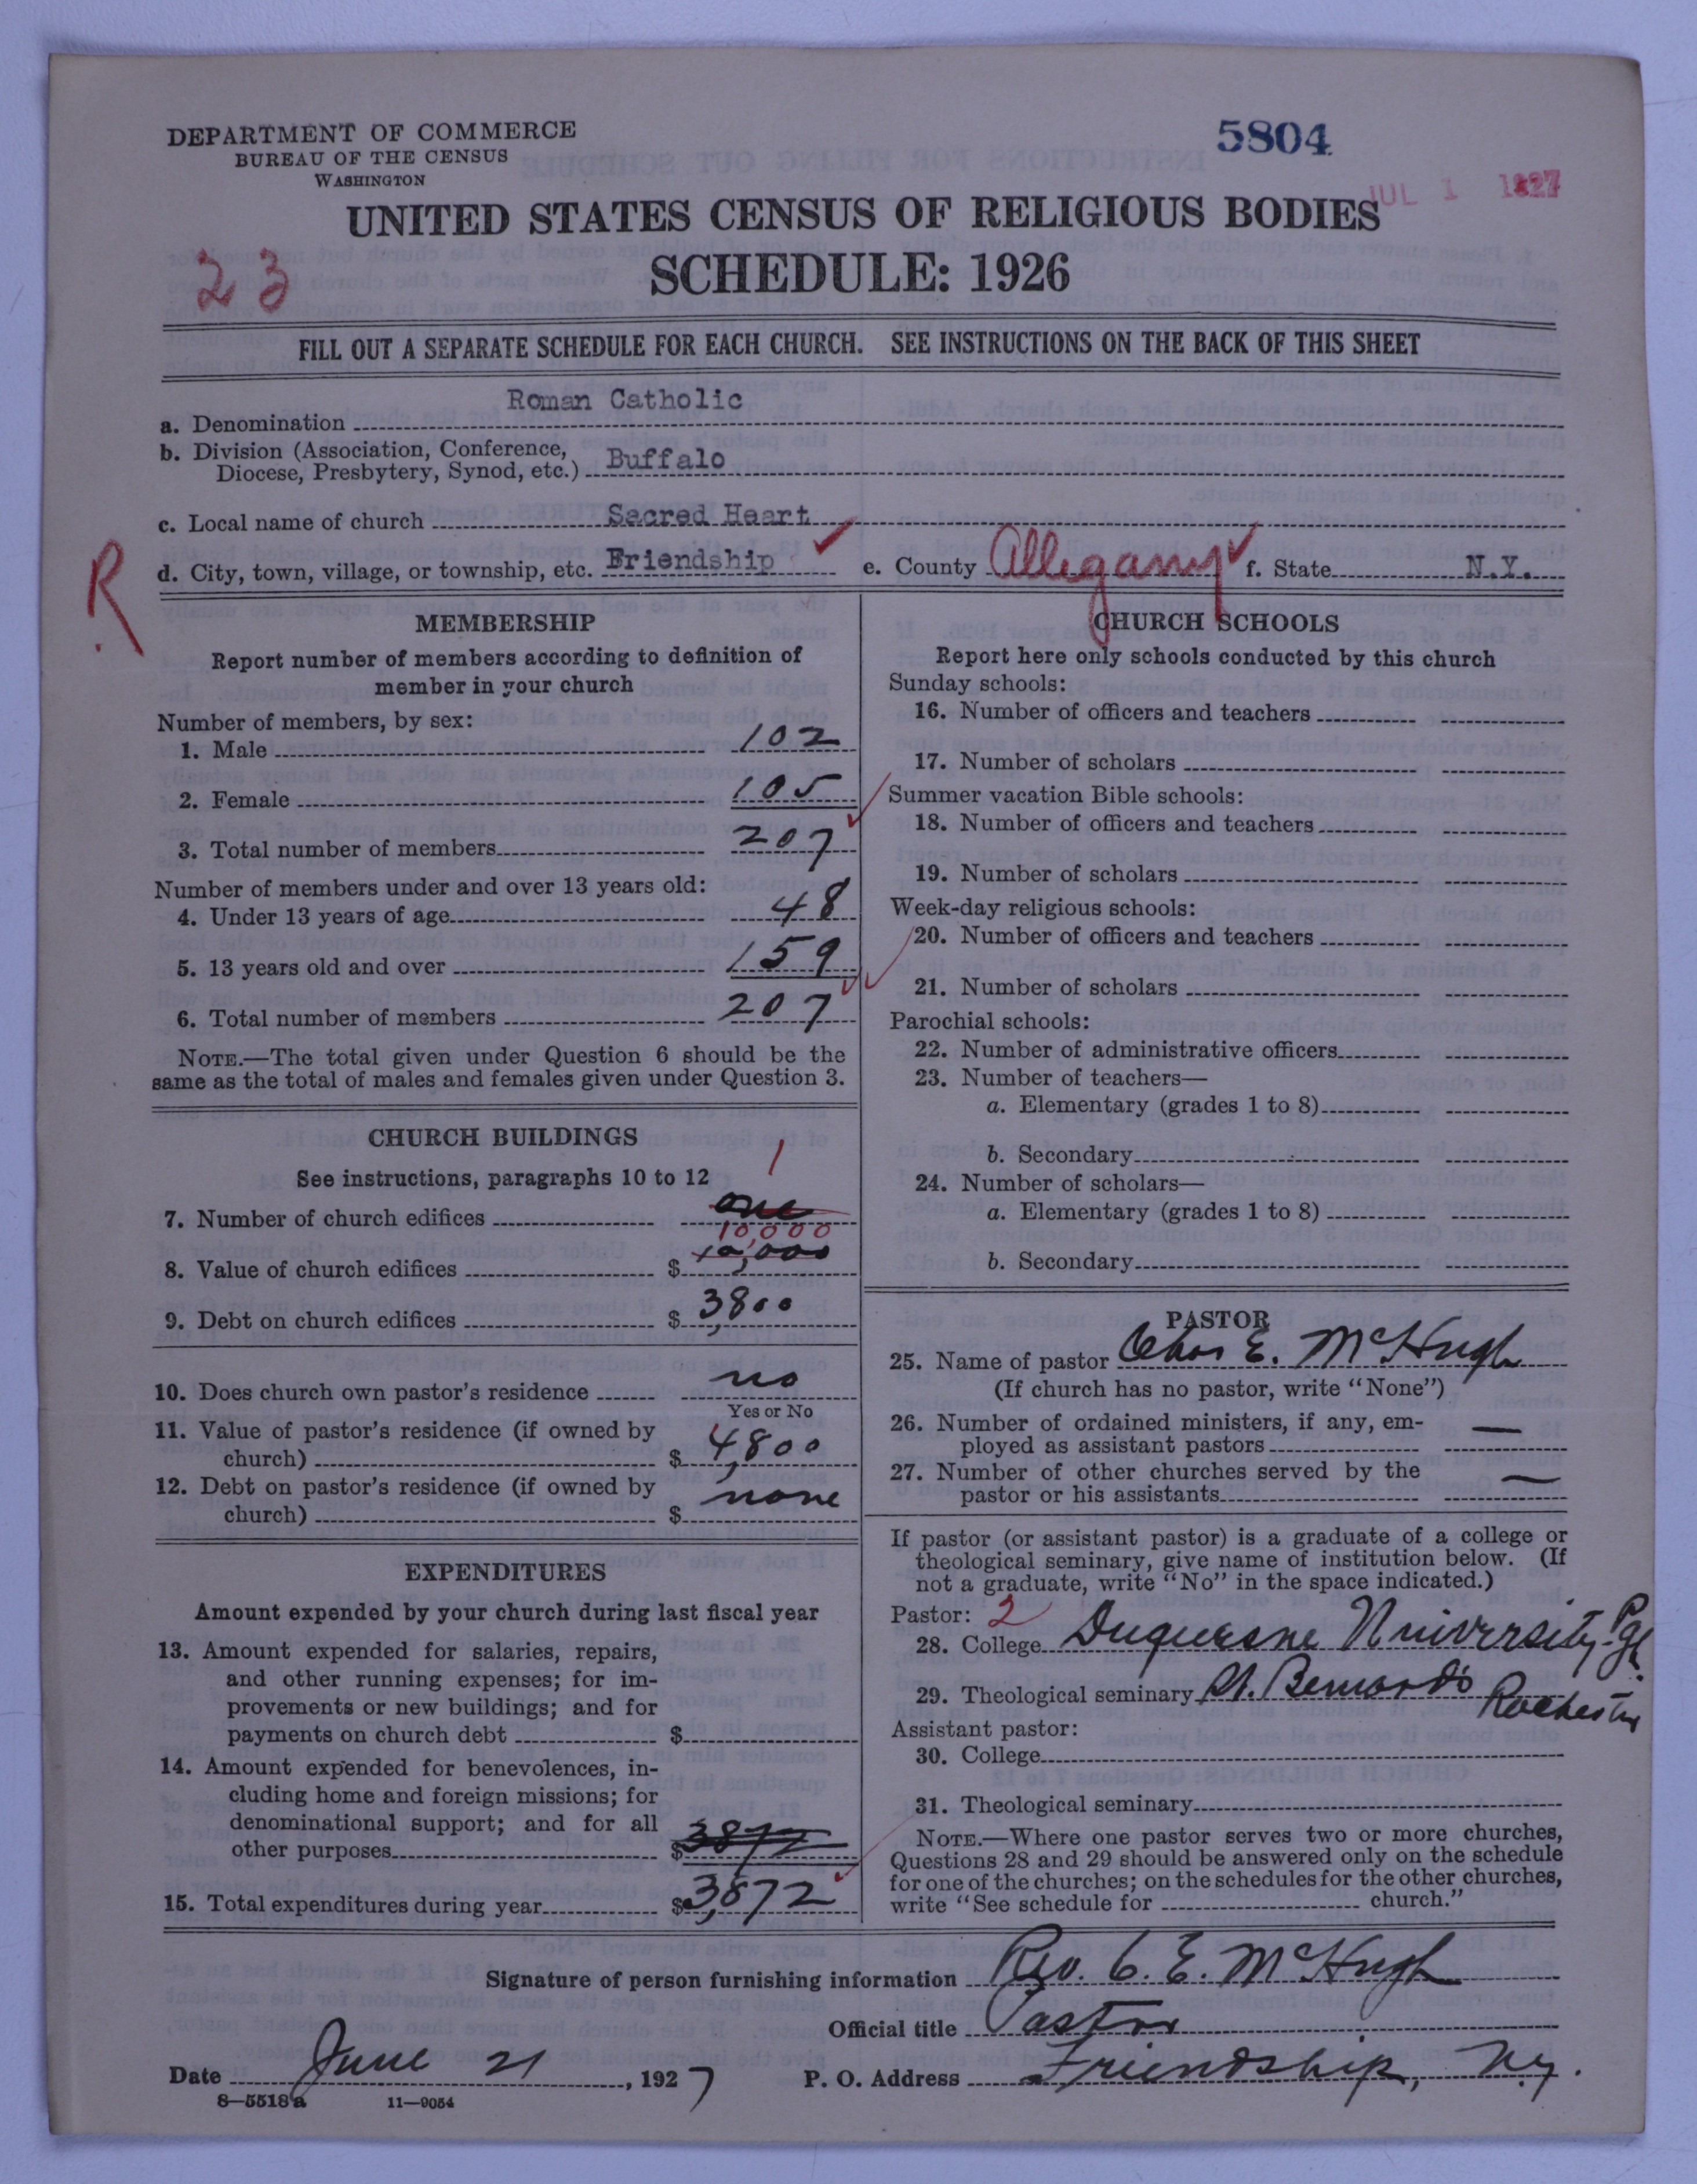 DEPARTMENT OF COMMERCE
BUREAU OF THE CENSUS
WASHINGTON
5804
JUL 1 1927
UNITED STATES CENSUS OF RELIGIOUS BODIES
SCHEDULE: 1926
23
FILL OUT A SEPARATE SCHEDULE FOR EACH CHURCH. SEE INSTRUCTIONS ON THE BACK OF THIS SHEET
a. Denomination Roman Catholic
b. Division (Association, Conference,
Diocese, Presbytery, Synod, etc.) Buffalo
c. Local name of church Sacred Heart
R
d. City, town, village, or township, etc. Friendship e. County Allegany f. State N.Y.
MEMBERSHIP
Report number of members according to definition of
member in your church
Number of members, by sex:
1. Male 102
2. Female 105
3. Total number of members 207
Number of members under and over 13 years old:
4. Under 13 years of age 48
5. 13 years old and over 159
6. Total number of members 207
NOTE.—The total given under Question 6 should be the
same as the total of males and females given under Question 3.
CHURCH BUILDINGS
See instructions, paragraphs 10 to 12
1
7. Number of church edifices one
10,000
8. Value of church edifices $ 10,000
9. Debt on church edifices $ 3,800
10. Does church own pastor's residence no
Yes or No
11. Value of pastor's residence (if owned by
church) $ 4,800
12. Debt on pastor's residence (if owned by
church) $ none
EXPENDITURES
Amount expended by your church during last fiscal year
13. Amount expended for salaries, repairs,
and other running expenses; for im-
provements or new buildings; and for
payments on church debt $
14. Amount expended for benevolences, in-
cluding home and foreign missions; for
denominational support; and for all
other purposes $ 3872
15. Total expenditures during year $ 3,872
CHURCH SCHOOLS
Report here only schools conducted by this church
Sunday schools:
16. Number of officers and teachers
17. Number of scholars
Summer vacation Bible schools:
18. Number of officers and teachers
19. Number of scholars
Week-day religious schools:
20. Number of officers and teachers
21. Number of scholars
Parochial schools:
22. Number of administrative officers
23. Number of teachers—
a. Elementary (grades 1 to 8)
b. Secondary
24. Number of scholars—
a. Elementary (grades 1 to 8)
b. Secondary
PASTOR
25. Name of pastor Chas E. McHugh
(If church has no pastor, write "None")
26. Number of ordained ministers, if any, em-
ployed as assistant pastors —
27. Number of other churches served by the
pastor or his assistants —
If pastor (or assistant pastor) is a graduate of a college or
theological seminary, give name of institution below. (If
not a graduate, write "No" in the space indicated.)
Pastor: 2
28. College Duquesne University Pgh.
29. Theological seminary St. Bernards Rochester
Assistant pastor:
30. College
31. Theological seminary
NOTE.—Where one pastor serves two or more churches,
Questions 28 and 29 should be answered only on the schedule
for one of the churches; on the schedules for the other churches,
write "See schedule for church."
Signature of person furnishing information Rev. C. E. McHugh
Official title Pastor
Date June 21, 1927 P. O. Address Friendship, N.Y.
8—5518 a 11—9054